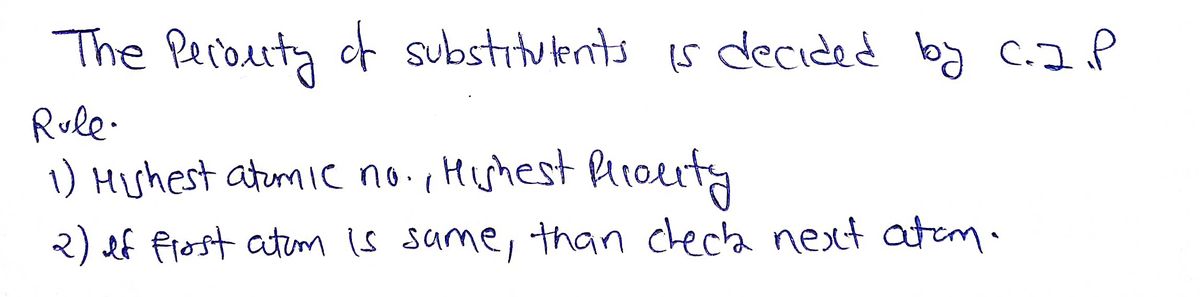 The Periouity of substitutents is decided by C.I.P
Rule.
1) Highest atomic no., Highest Periouity
2) If First atom is same, than check next atom.